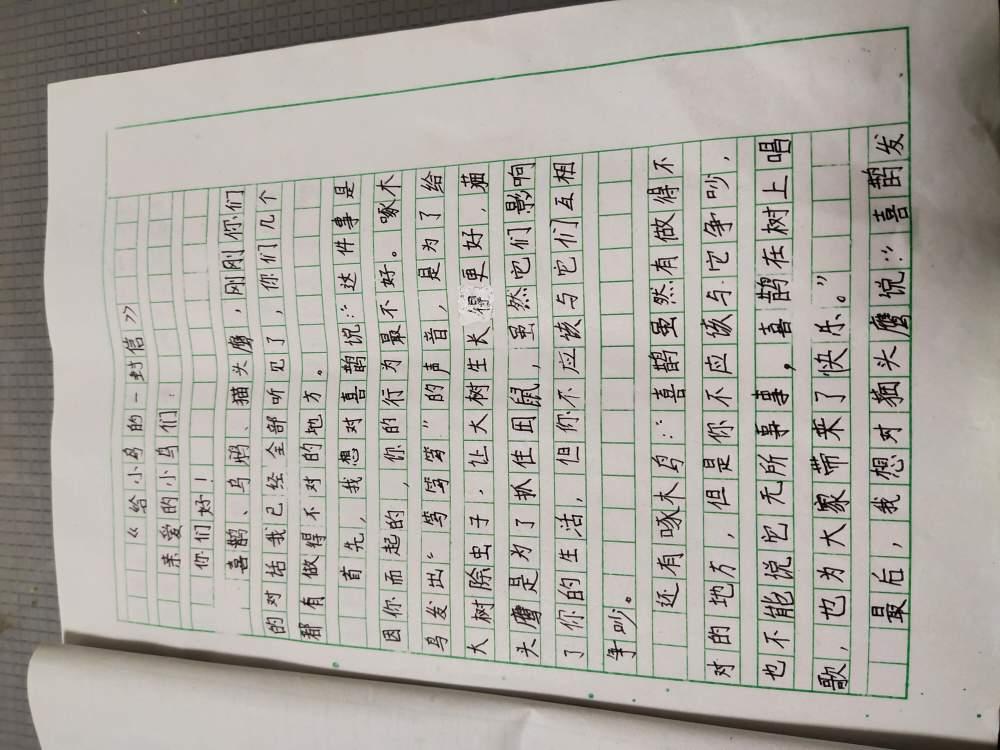 《给小鸟的一封信》
亲爱的小鸟们：
你们好！
喜鹊、乌鸦、猫头鹰，刚刚你们
的对话我已经全部听见了，你们几个
都有做得不对的地方。
首先，我想对喜鹊说：“这件事是
因你而起的，你的行为最不好。啄木
鸟发出“笃笃笃”的声音，是为了给
大树除虫子，让大树生长得更好，猫
头鹰是为了抓住田鼠，虽然它们影响
了你的生活，但你不应该与它们互相
争吵。
还有啄木鸟：“喜鹊虽然有做得不
对的地方，但是你不应该与它争吵，
也不能说它无所事事，喜鹊在树上唱
歌，也为大家带来了快乐。”
最后，我想对猫头鹰说：“喜鹊发